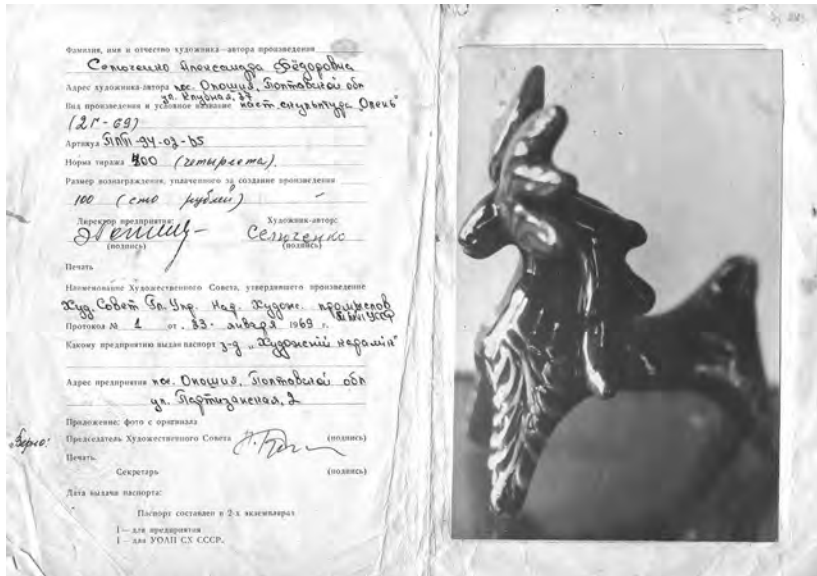 Фамилия, имя и отчество художника—автора произведения
Селюченко Александра Фёдоровна
Адрес художника-автора пос. Опошня, Полтавской обл
ул. Клубная, 37
Вид произведения и условное название наст. скульптура „Олень"
(2Г-69)
Артикул ПМП-94-02-05
Норма тиража 400 (четыреста).
Размер вознаграждения, уплаченного за создание произведения
100 (сто рублей)
Директор предприятия: Художник-автор:
Селюченко
(подпись) (подпись)
Печать
Наименование Художественного Совета, утвердившего произведение
Худ. Совет Гл. Упр. Над. Художн. промыслов
Протокол № 1 от . 23 . января 1969 г.
Какому предприятию выдан паспорт з-д „Художній керамік"
Адрес предприятия пос. Опошня, Полтавской обл
ул. Партизанская, 2
Приложение: фото с оригинала
„Верно: Председатель Художественного Совета (подпись)
Печать.
Секретарь (подпись)
Дата выдачи паспорта:
Паспорт составлен в 2-х экземплярах
1 — для предприятия
1 — для УОЛП СХ СССР.